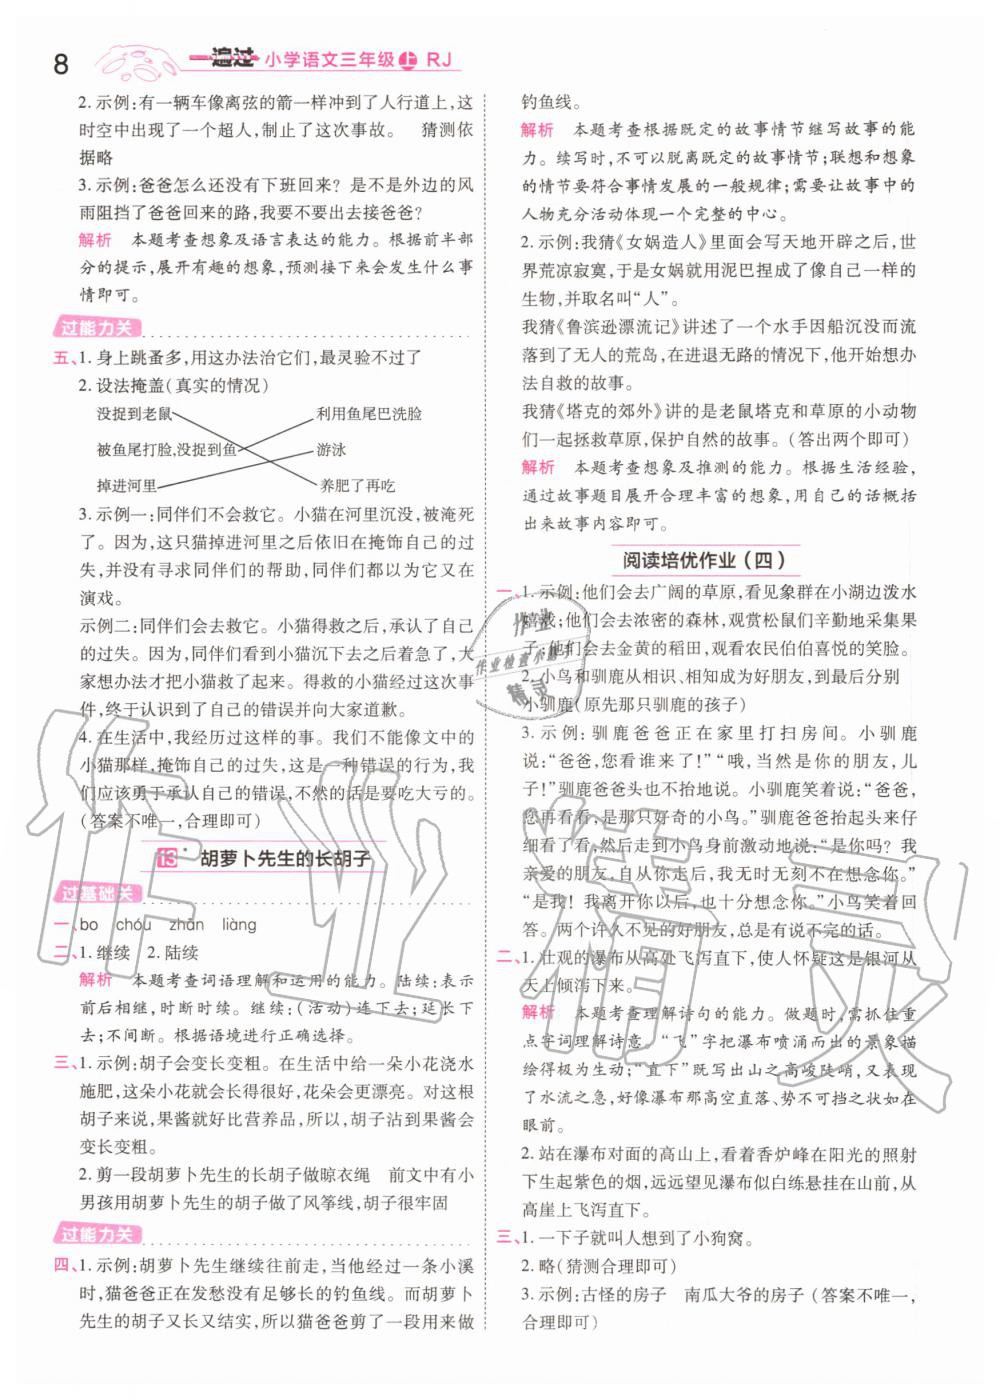 8
一遍过 小学语文三年级上 RJ
2. 示例:有一辆车像离弦的箭一样冲到了人行道上,这
时空中出现了一个超人,制止了这次事故。 猜测依
据略
3. 示例:爸爸怎么还没有下班回来? 是不是外边的风
雨阻挡了爸爸回来的路,我要不要出去接爸爸?
解析 本题考查想象及语言表达的能力。根据前半部
分的提示,展开有趣的想象,预测接下来会发生什么事
情即可。
过能力关
五、1. 身上跳蚤多,用这办法治它们,最灵验不过了
2. 设法掩盖(真实的情况)
没捉到老鼠 利用鱼尾巴洗脸
被鱼尾打脸,没捉到鱼 游泳
掉进河里 养肥了再吃
3. 示例一:同伴们不会救它。小猫在河里沉没,被淹死
了。因为,这只猫掉进河里之后依旧在掩饰自己的过
失,并没有寻求同伴们的帮助,同伴们都以为它又在
演戏。
示例二:同伴们会去救它。小猫得救之后,承认了自己
的过失。同伴们看到小猫沉下去之后着急了起来,大
家想办法才把小猫救了起来。得救的小猫经过这次事
件,终于认识到了自己的错误并向大家道歉。
4. 在生活中,我经历过这样的事。我们不能像文中的
小猫那样,掩饰自己的过失,这是一种错误的行为,我
们应该勇于承认自己的错误,不然的话是要吃大亏的。
(答案不唯一,合理即可)
13* 胡萝卜先生的长胡子
过基础关
一、bo chóu zhān liàng
二、1. 继续 2. 陆续
解析 本题考查词语理解和运用的能力。陆续:表示
前后相继,时断时续。继续:(活动)连下去;延长下
去;不间断。根据语境进行正确选择。
三、1. 示例:胡子会变长变粗。在生活中给一朵小花浇水
施肥,这朵小花就会长得很好,花朵会更漂亮。对这根
胡子来说,果酱就好比营养品,所以,胡子沾到果酱会
变长变粗。
2. 剪一段胡萝卜先生的长胡子做晾衣绳 前文中有小
男孩用胡萝卜先生的胡子做了风筝线,胡子很牢固
过能力关
四、1. 示例:胡萝卜先生继续往前走,当他经过一条小溪
时,猫爸爸正在发愁没有足够长的钓鱼线。而胡萝卜
先生的胡子又长又结实,所以猫爸爸剪了一段用来做
钓鱼线。
解析 本题考查根据既定的故事情节继写故事的能
力。续写时,不可以脱离既定的故事情节;联想和想象
的情节要符合事情发展的一般规律;需要让故事中的
人物充分活动体现一个完整的中心。
2. 示例:我猜《女娲造人》里面会写天地开辟之后,世
界荒凉寂寞,于是女娲就用泥巴捏成了像自己一样的
生物,并取名叫“人”。
我猜《鲁滨逊漂流记》讲述了一个水手因船沉没而流
落到了无人的荒岛,在进退无路的情况下,他开始想办
法自救的故事。
我猜《塔克的郊外》讲的是老鼠塔克和草原的小动物
们一起拯救草原,保护自然的故事。(答出两个即可)
解析 本题考查想象及推测的能力。根据生活经验,
通过故事题目展开合理丰富的想象,用自己的话概括
出来故事内容即可。
阅读培优作业(四)
一、1. 示例:他们会去广阔的草原,看见象群在小湖边泼水
嬉戏;他们会去浓密的森林,观赏松鼠们辛勤地采集果
子;他们会去金黄的稻田,观看农民伯伯喜悦的笑脸。
2. 小鸟和驯鹿从相识、相知成为好朋友,到最后分别
小驯鹿(原先那只驯鹿的孩子)
3. 示例:驯鹿爸爸正在家里打扫房间。小驯鹿
说:“爸爸,您看看谁来了!”“哦,当然是你的朋友,儿
子!”驯鹿爸爸头也不抬地说。小驯鹿笑着说:“爸爸,
您再看看,是那只好奇的小鸟。驯鹿爸爸抬起头来仔
细看了看,然后走到小鸟身前激动地说:“是你? 我
亲爱的朋友,自从你走后,我无时无刻不在想念你。”
“是我! 我离开你以后,也十分想念你。”小鸟笑着回
答。两个许久不见的好朋友,总是有说不完的话。
二、1. 壮观的瀑布从高处飞泻直下,使人怀疑这是银河从
天上倾泻下来。
解析 本题考查理解诗句的能力。做题时,需抓住重
点字词理解诗意。“飞”字把瀑布喷涌而出的景象描
绘得极为生动;“直下”既写出山之高峻陡峭,又表现
了水流之急,好像瀑布那高空直落、势不可挡之状如在
眼前。
2. 站在瀑布对面的高山上,看着香炉峰在阳光的照射
下生起紫色的烟,远远望见瀑布似白练悬挂在山前,从
高崖上飞泻直下。
三、1. 一下子就叫人想到了小狗窝。
2. 略(猜测合理即可)
3. 示例:古怪的房子 南瓜大爷的房子(答案不唯一,
合理即可)
作业
作业检查小助手
精灵
作业精灵